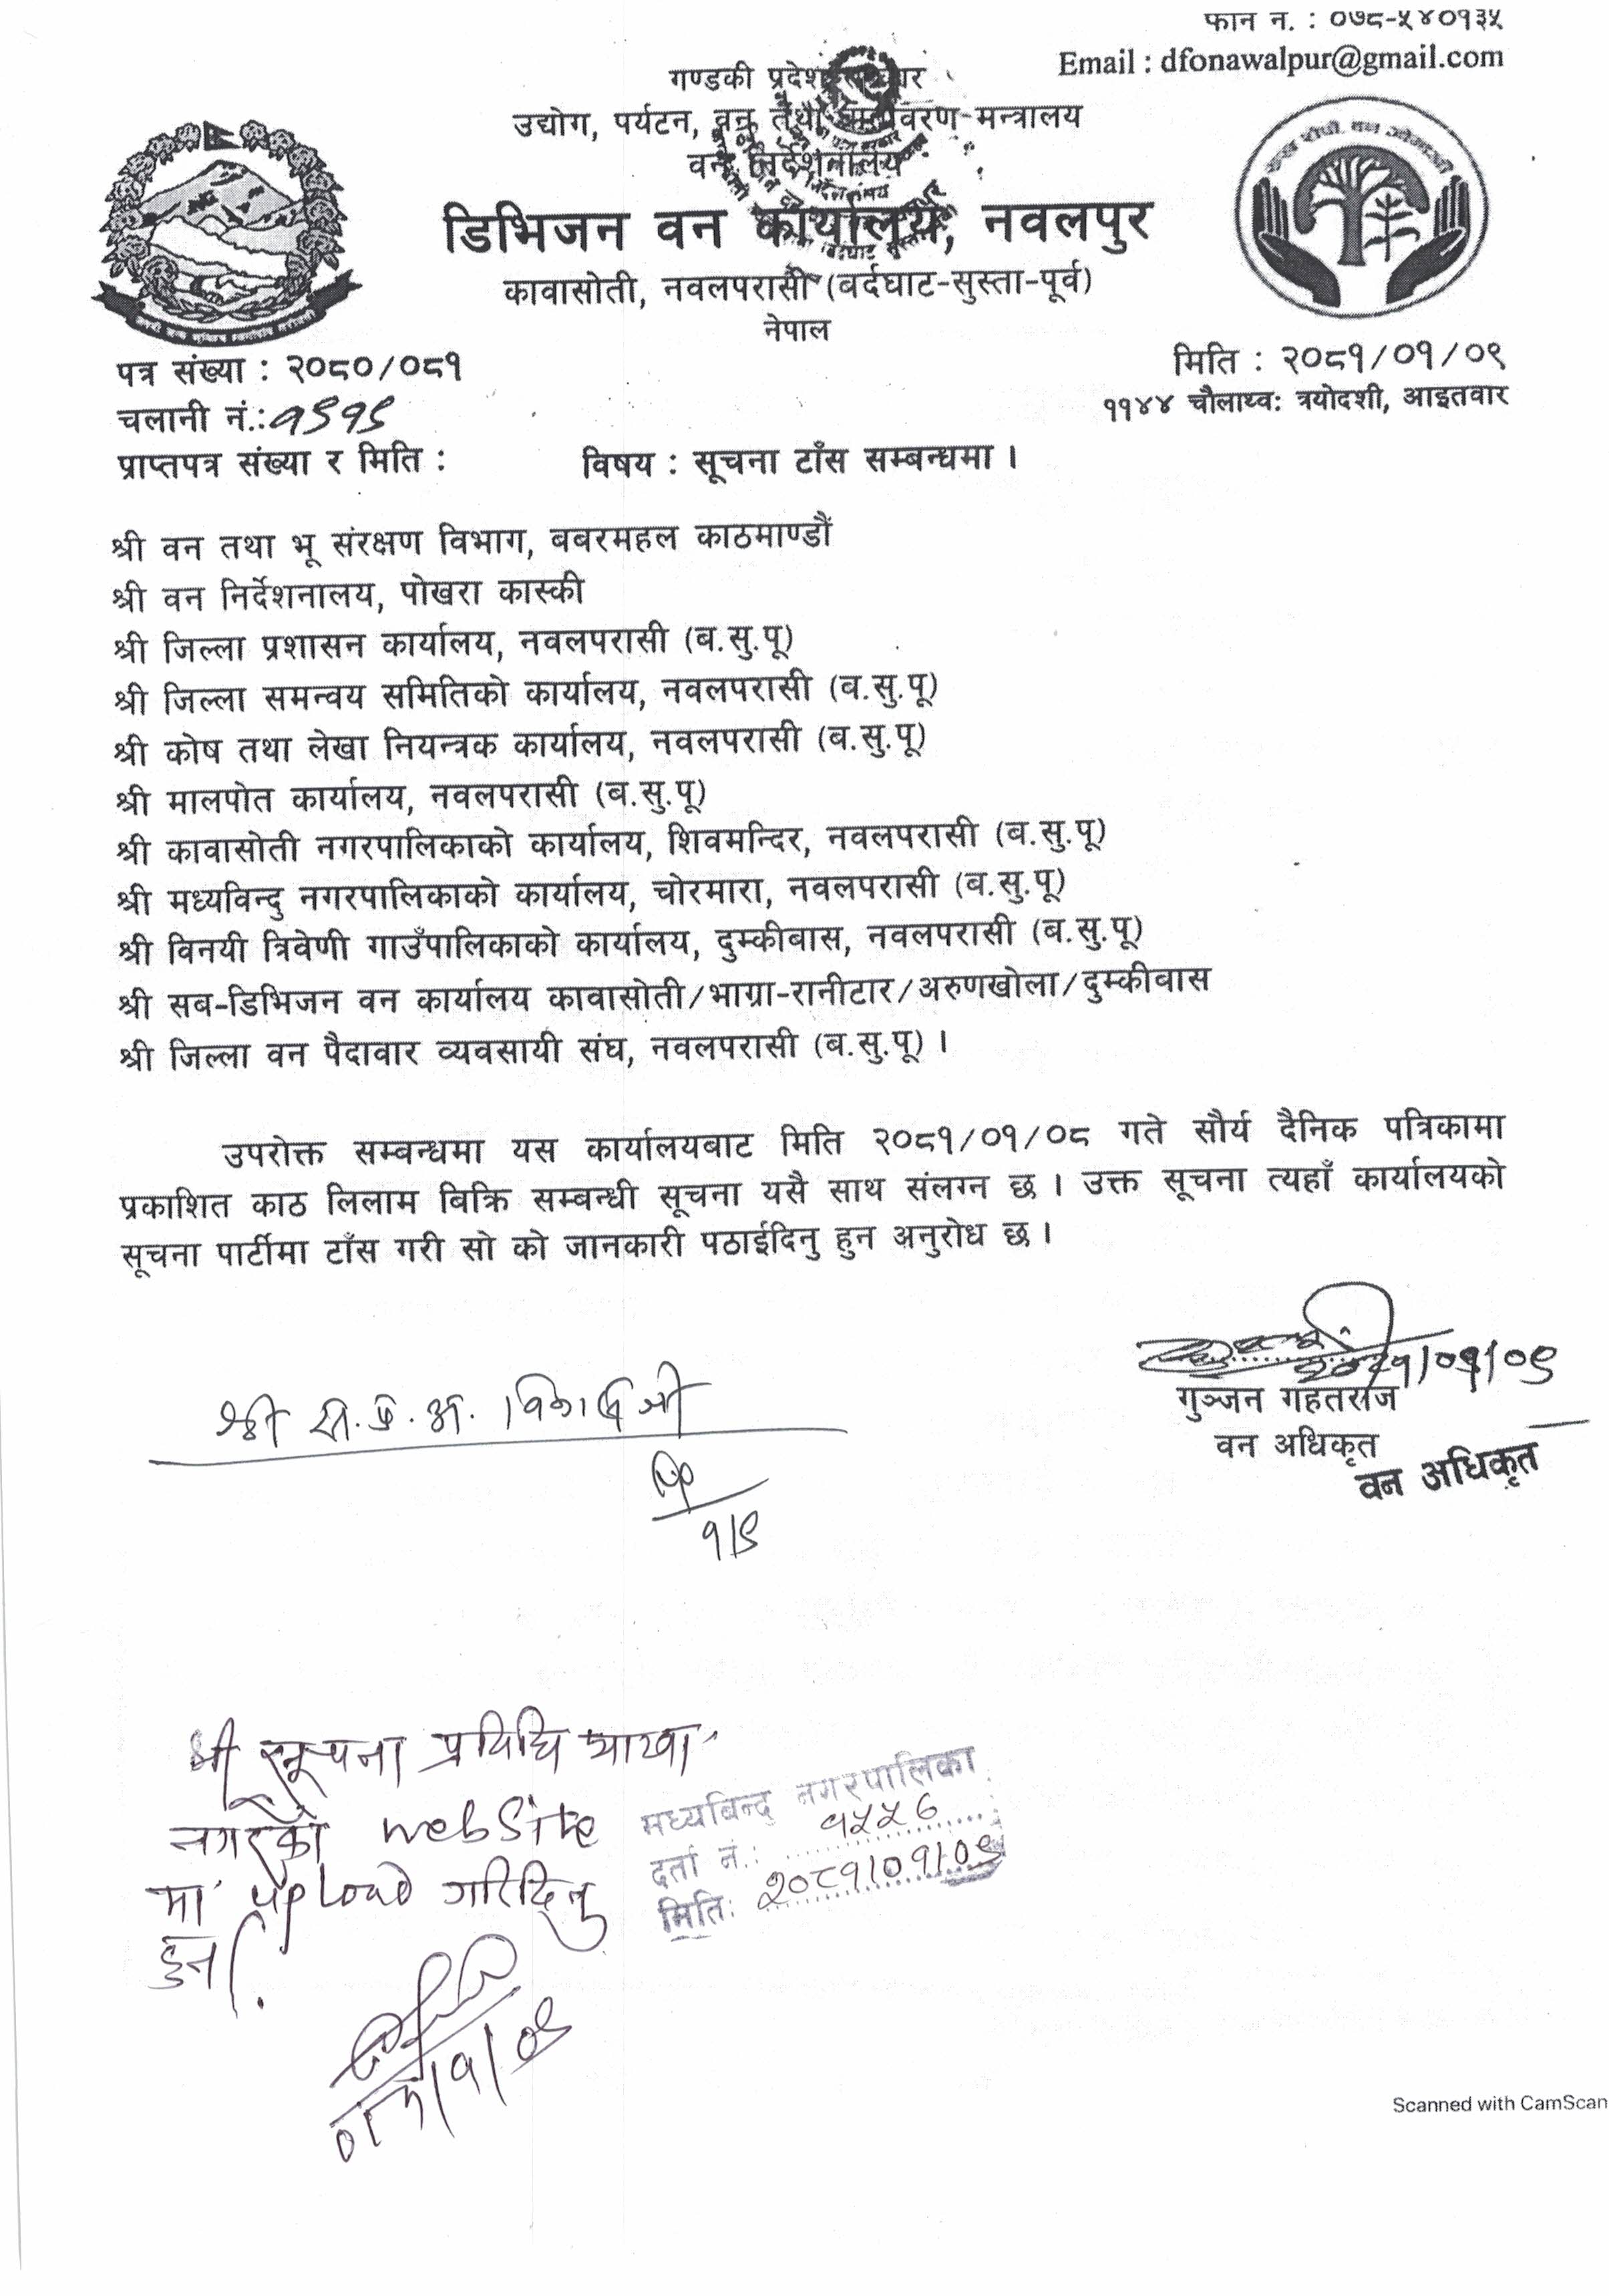 फान न. : ०७८-५४०१३५
Email : dfonawalpur@gmail.com
गण्डकी प्रदेश सरकार
उद्योग, पर्यटन, वन तथा वातावरण मन्त्रालय
वन निर्देशनालय
डिभिजन वन कार्यालय, नवलपुर
कावासोती, नवलपरासी (बर्दघाट-सुस्ता-पूर्व)
नेपाल
पत्र संख्या : २०८०/०८१
मिति : २०८१/०१/०९
चलानी नं.: १९१९
११४४ चौलाथ्व: त्रयोदशी, आइतवार
प्राप्तपत्र संख्या र मिति :
विषय : सूचना टाँस सम्बन्धमा ।
श्री वन तथा भू संरक्षण विभाग, बबरमहल काठमाण्डौं
श्री वन निर्देशनालय, पोखरा कास्की
श्री जिल्ला प्रशासन कार्यालय, नवलपरासी (ब.सु.पू)
श्री जिल्ला समन्वय समितिको कार्यालय, नवलपरासी (ब.सु.पू)
श्री कोष तथा लेखा नियन्त्रक कार्यालय, नवलपरासी (ब.सु.पू)
श्री मालपोत कार्यालय, नवलपरासी (ब.सु.पू)
श्री कावासोती नगरपालिकाको कार्यालय, शिवमन्दिर, नवलपरासी (ब.सु.पू)
श्री मध्यविन्दु नगरपालिकाको कार्यालय, चोरमारा, नवलपरासी (ब.सु.पू)
श्री विनयी त्रिवेणी गाउँपालिकाको कार्यालय, दुम्कीबास, नवलपरासी (ब.सु.पू)
श्री सब-डिभिजन वन कार्यालय कावासोती/भाग्रा-रानीटार/अरुणखोला/दुम्कीवास
श्री जिल्ला वन पैदावार व्यवसायी संघ, नवलपरासी (ब.सु.पू) ।
उपरोक्त सम्बन्धमा यस कार्यालयबाट मिति २०८१/०१/०८ गते सौर्य दैनिक पत्रिकामा
प्रकाशित काठ लिलाम बिक्रि सम्बन्धी सूचना यसै साथ संलग्न छ । उक्त सूचना त्यहाँ कार्यालयको
सूचना पार्टीमा टाँस गरी सो को जानकारी पठाईदिनु हुन अनुरोध छ ।
२०८१/०१/०९
गुञ्जन गहतराज
वन अधिकृत
वन अधिकृत
श्री स.प्र.अ.
१/९
श्री सूचना प्रविधि शाखा
नगरको website
मा upload गरिदिनु
हुन।
मध्यबिन्दु नगरपालिका
दर्ता नं.: १५५६
मिति: २०८१/०१/०९
Scanned with CamScan